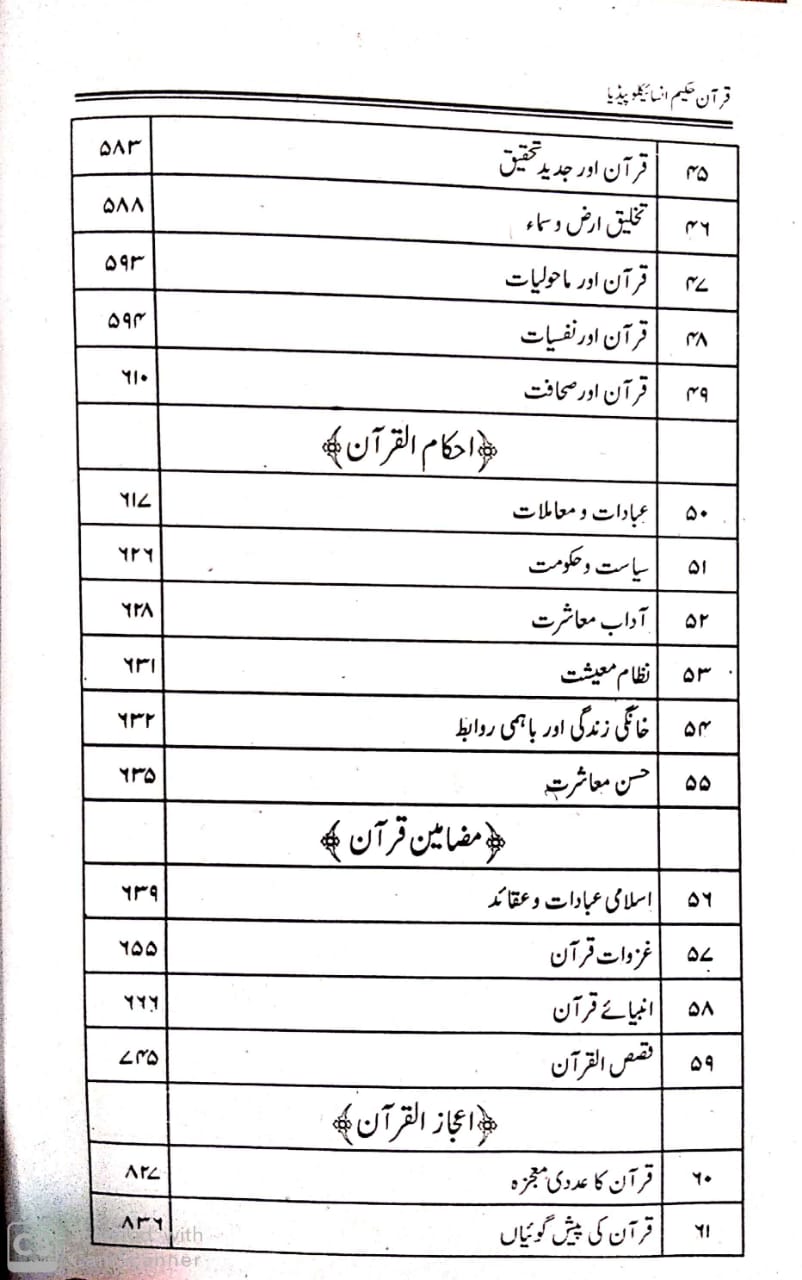 قرآن حکیم انسائیکلوپیڈیا
۴۵ قرآن اور جدید تحقیق ۵۸۳
۴۶ تخلیق ارض و سماء ۵۸۸
۴۷ قرآن اور ماحولیات ۵۹۳
۴۸ قرآن اور نفسیات ۵۹۴
۴۹ قرآن اور صحافت ۶۱۰
﴿احکام القرآن﴾
۵۰ عبادات و معاملات ۶۱۷
۵۱ سیاست و حکومت ۶۲۶
۵۲ آداب معاشرت ۶۲۸
۵۳ نظام معیشت ۶۳۱
۵۴ خانگی زندگی اور باہمی روابط ۶۳۲
۵۵ حسن معاشرت ۶۳۵
﴿مضامین قرآن﴾
۵۶ اسلامی عبادات و عقائد ۶۳۹
۵۷ غزوات قرآن ۶۵۵
۵۸ انبیائے قرآن ۶۶۶
۵۹ قصص القرآن ۷۴۵
﴿اعجاز القرآن﴾
۶۰ قرآن کا عددی معجزہ ۸۲۷
۶۱ قرآن کی پیش گوئیاں ۸۳۶